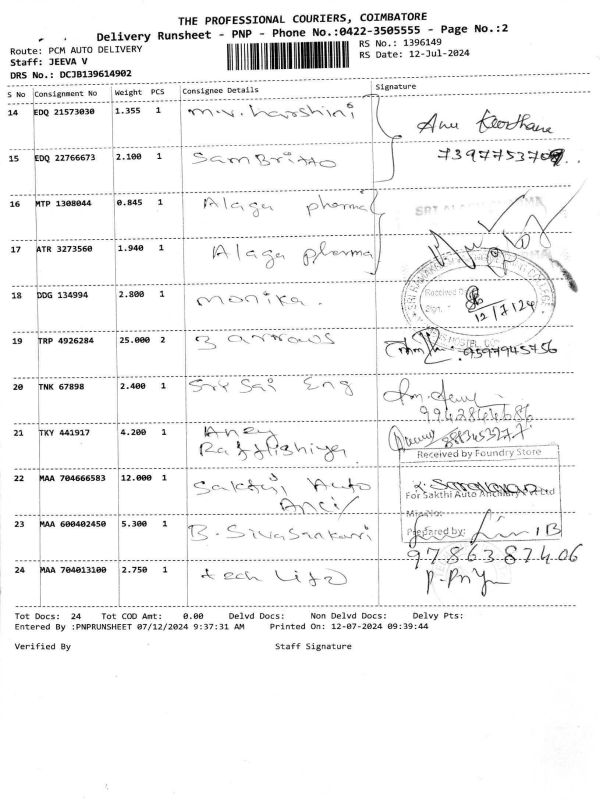 THE PROFESSIONAL COURIERS, COIMBATORE
Delivery Runsheet - PNP - Phone No.:0422-3505555 - Page No.:2
Route: PCM AUTO DELIVERY
RS No.: 1396149
Staff: JEEVA V
RS Date: 12-Jul-2024
DRS No.: DCJB139614902
S No Consignment No Weight PCS Consignee Details Signature
14 EDQ 21573030 1.355 1 m.v. harshini
15 EDQ 22766673 2.100 1 Sam Britto
16 MTP 1308044 0.845 1 Alaga pharma
17 ATR 3273560 1.940 1 Alaga pharma
Received
Sign.
12/7/124
18 DDG 134994 2.800 1 monika.
19 TRP 4926284 25.000 2 3 arrows 9597945756
20 TNK 67898 2.400 1 Sri Sai Eng
9942844686
21 TKY 441917 4.200 1
Received by Foundry Store
22 MAA 704666583 12.000 1 Sakthi Auto
Anci
For Sakthi Auto Ancillary Pvt Ltd
23 MAA 600402450 5.300 1 B. Sivasankari
Prepared by:
9786387406
24 MAA 704013100 2.750 1 tech
Tot Docs: 24 Tot COD Amt: 0.00 Delvd Docs: Non Delvd Docs: Delvy Pts:
Entered By :PNPRUNSHEET 07/12/2024 9:37:31 AM Printed On: 12-07-2024 09:39:44
Verified By Staff Signature